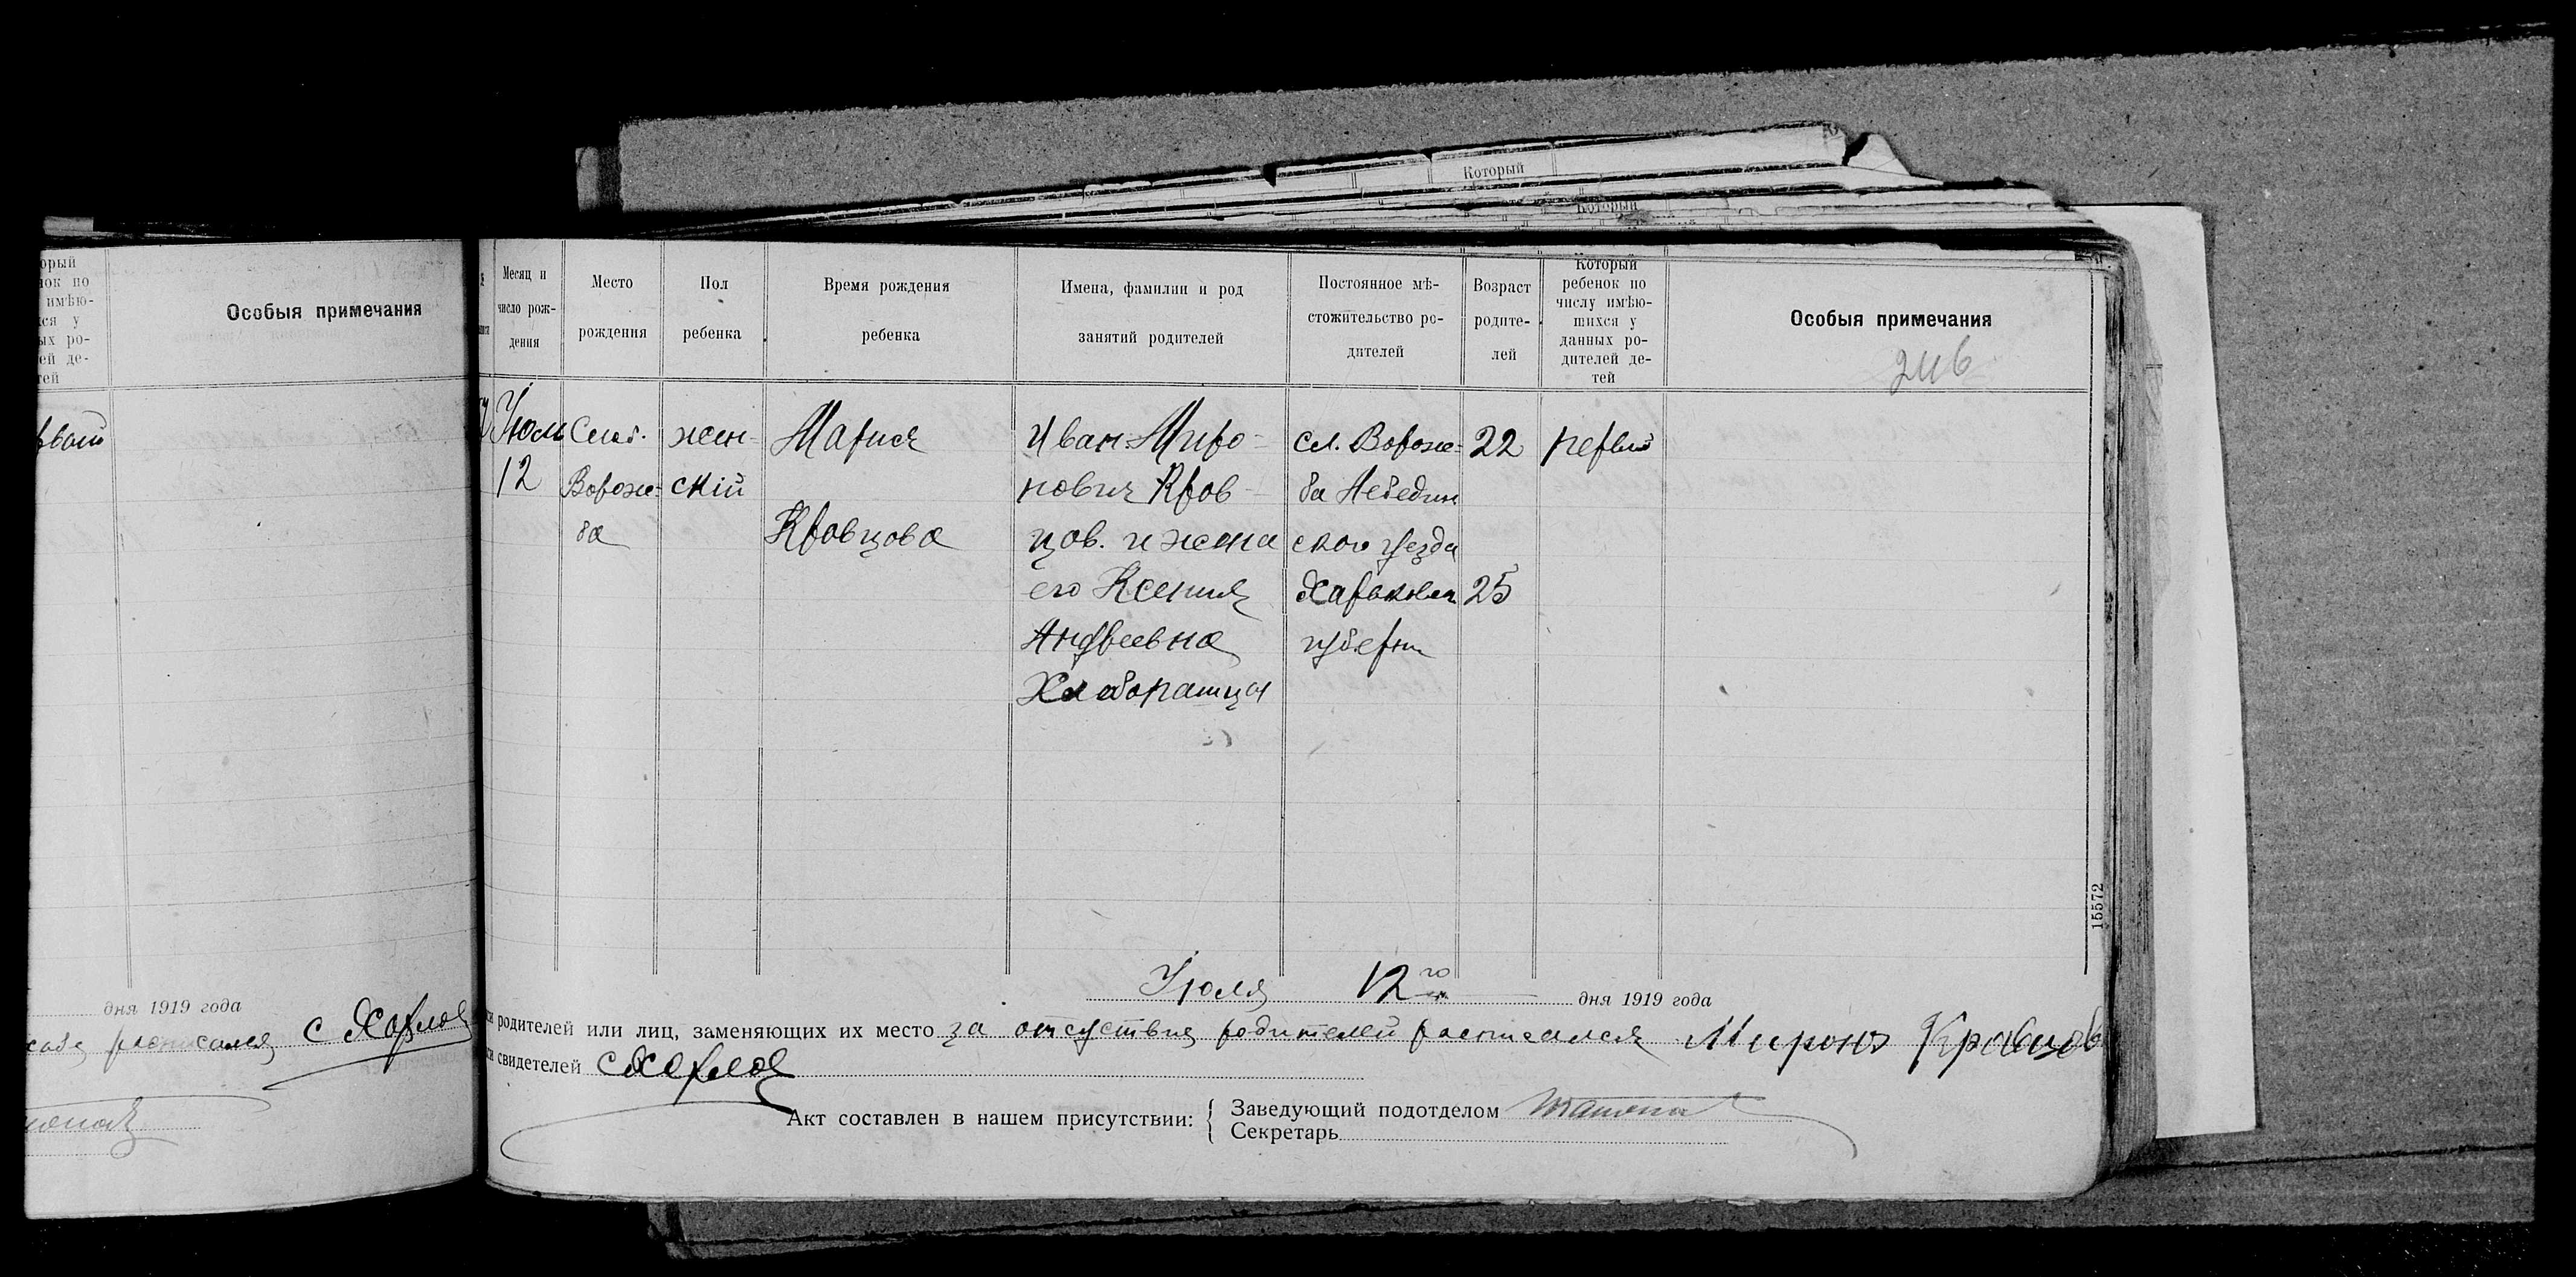 Который
Который
орый
нок по
имѣю-
ся у
ых ро-
ей де-
тей
Особыя примечания
дня 1919 года
расписался С Хорлов
Месяц и число рож-дения
Место рождения
Пол ребенка
Время рождения ребенка
Имена, фамилии и род занятий родителей
Постоянное мѣ-стожительство ро-дителей
Возраст родите-лей
Который ребенок по числу имѣю-щихся у данных ро-дителей де-тей
Особыя примечания
246
Июля
12
Слоб.
Вороже-
ба
жен-
скій
Мария
Кровцова
Иван Миро-
нович Кров-
цов. и жена
его Ксения
Андреевна
Хлебопашцы
сл. Вороже-
ба Лебедин
ского уезда
Харьковск
губерни
22
25
первый
15572
Июля 12го дня 1919 года
родителей или лиц, заменяющих их место за отсуствия родителей расписался Миронъ Кравцовъ
свидетелей С Хорлов
Акт составлен в нашем присутствии:
Заведующий подотделом
Секретарь